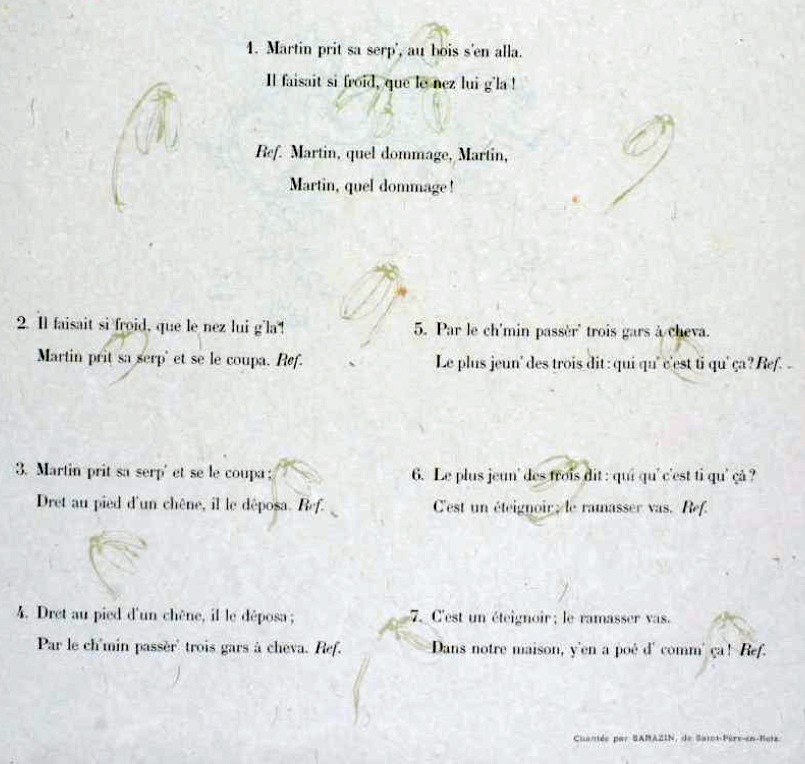 1. Martin prit sa serp', au bois s'en alla.
Il faisait si froid, que le nez lui g'la !
Ref. Martin, quel dommage, Martin,
Martin, quel dommage !
2. Il faisait si froid, que le nez lui g'la !
Martin prit sa serp' et se le coupa. Ref.
3. Martin prit sa serp' et se le coupa ;
Dret au pied d'un chêne, il le déposa. Ref.
4. Dret au pied d'un chêne, il le déposa ;
Par le ch'min passèr' trois gars à cheva. Ref.
5. Par le ch'min passèr' trois gars à cheva.
Le plus jeun' des trois dit : qui qu' c'est ti qu' ça ? Ref.
6. Le plus jeun' des trois dit : qui qu' c'est ti qu' çà ?
C'est un éteignoir ; le ramasser vas. Ref.
7. C'est un éteignoir ; le ramasser vas.
Dans notre maison, y'en a poé d' comm' ça ! Ref.
Chantée par SARAZIN, de Saint-Père-en-Retz.